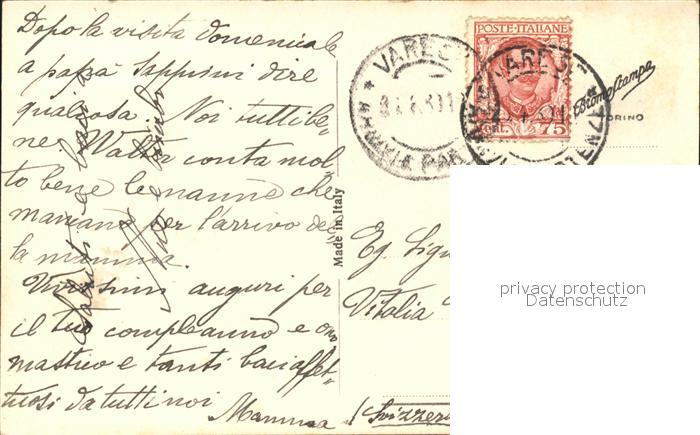 Dopo la visita domenicale
a papà sappimi dire
qualcosa. Noi tutti be-
ne. Walter conta mol-
to bene le nanne che
mancano per l'arrivo del-
la mamma.
Vivissimi auguri per
il tuo compleanno e ono-
mastico e tanti baci affet-
tuosi da tutti noi
Mamma
Saluti e baci
POSTE·ITALIANE
CENT. 75
VARESE
VARESE
PARTENZE
Bromostampa
TORINO
Made in Italy
Eg. Sign
Vitalia
(Svizzera
privacy protection
Datenschutz